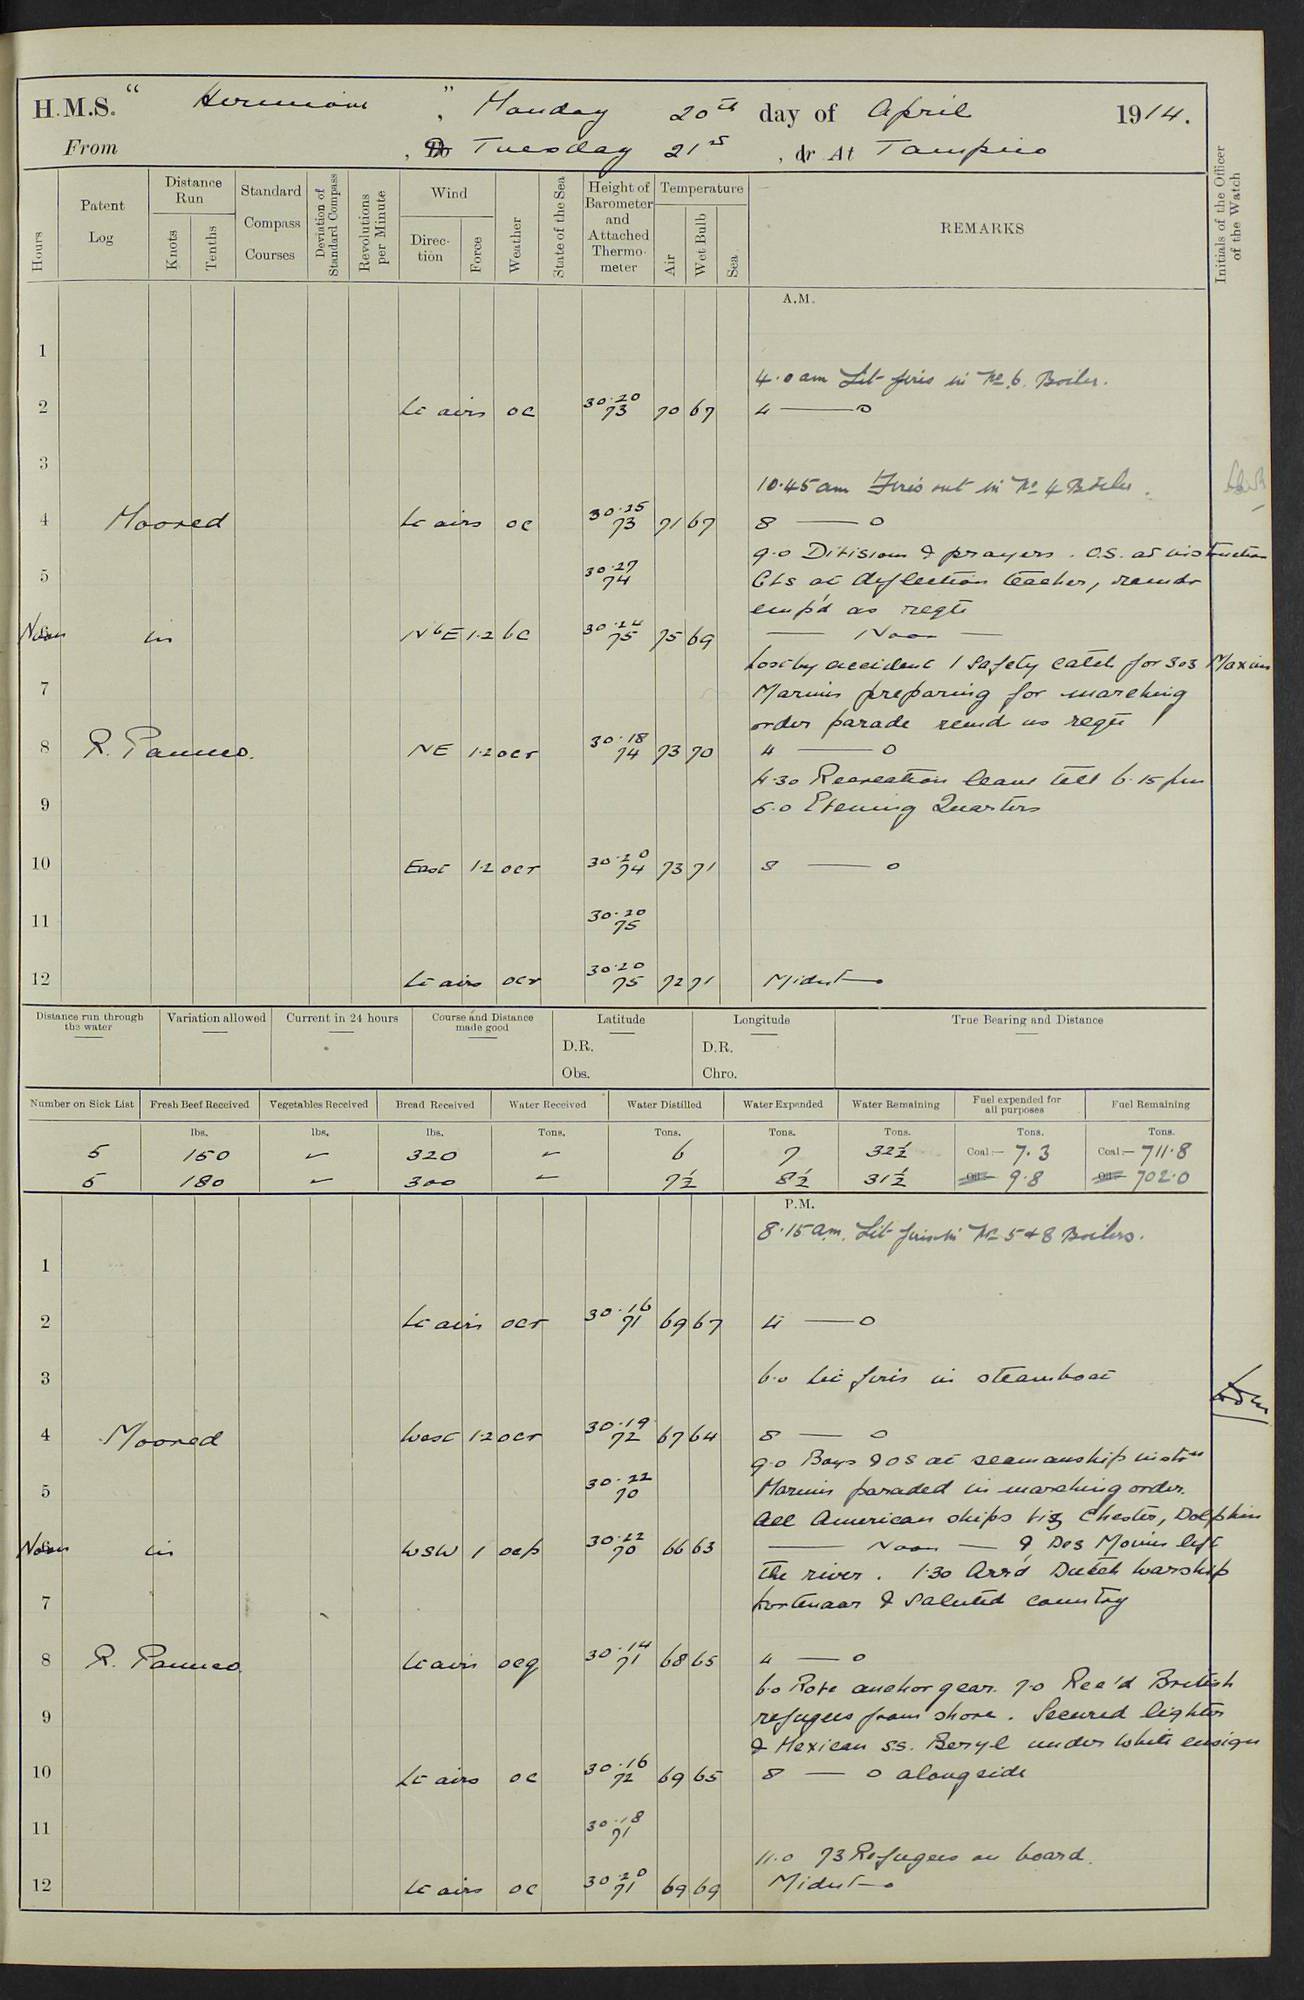 H.M.S. " Hermione " , Monday 20th day of April 1914.
From , Do Tuesday 21s , or At Tampico
Hours
Patent Log
Distance Run
Knots
Tenths
Standard Compass Courses
Deviation of Standard Compass
Revolutions per Minute
Wind
Direction
Force
Weather
State of the Sea
Height of Barometer and Attached Thermometer
Temperature
Air
Wet Bulb
Sea
REMARKS
Initials of the Officer of the Watch
A.M.
1
4.0 am Lit fires in No 6. Boiler.
2 Lt airs oc 30.20 73 70 67 4 — 0
3
10.45 am Fires out in No 4 Boiler.
4 Moored Lt airs oc 30.25 73 71 67 8 — 0
9.0 Divisions & prayers. O.S. at instruction
5 30.27 74 GLs at deflection teacher, remdr
emp'd as reqte
Noon in N'b'E 1.2 bc 30.24 75 75 69 — Noon —
Lost by accident 1 safety catch for 303 Maxim
7 Marines preparing for marching
order parade remd as reqte
8 R. Panuco. NE 1.2 ocr 30.18 74 73 70 4 — 0
4.30 Recreation leave till 6.15 pm
9 5.0 Evening Quarters
10 East 1.2 ocr 30.20 74 73 71 8 — 0
11 30.20 75
12 Lt airs ocr 30.20 75 72 71 Midnt —o
Distance run through the water
Variation allowed
Current in 24 hours
Course and Distance made good
Latitude
D.R.
Obs.
Longitude
D.R.
Chro.
True Bearing and Distance
Number on Sick List Fresh Beef Received Vegetables Received Bread Received Water Received Water Distilled Water Expended Water Remaining Fuel expended for all purposes Fuel Remaining
lbs. lbs. lbs. Tons. Tons. Tons. Tons. Tons. Tons.
5 150 ✓ 320 ✓ 6 7 32½ Coal:— 7.3 Coal:— 711.8
5 180 ✓ 300 ✓ 7½ 8½ 31½ Oil:— 9.8 Oil:— 702.0
P.M.
8.15 am. Lit fires in No 5 & 8 Boilers.
1
2 Lt airs ocr 30.16 71 69 67 4 — 0
3 6.0 Lit fires in steamboat
4 Moored West 1.2 ocr 30.19 72 67 64 8 — 0
9.0 Boys & OS at seamanship instrn
5 30.22 70 Marines paraded in marching order.
All American ships viz Chester, Dolphin
Noon in WSW 1 ocp 30.22 70 66 63 — Noon — & Des Moines left
the river. 1.30 Arr'd Dutch warship
7 Kortenaar & saluted country
8 R. Panuco Lt airs ocq 30.14 71 68 65 4 — 0
6.0 Rove anchor gear. 7.0 Rec'd British
9 refugees from shore. Secured lighter
& Mexican ss. Beryl under white ensign
10 Lt airs oc 30.16 72 69 65 8 — 0 alongside
11 30.18 71
11.0 73 Refugees on board.
12 Lt airs oc 30.20 71 69 69 Midnt —o